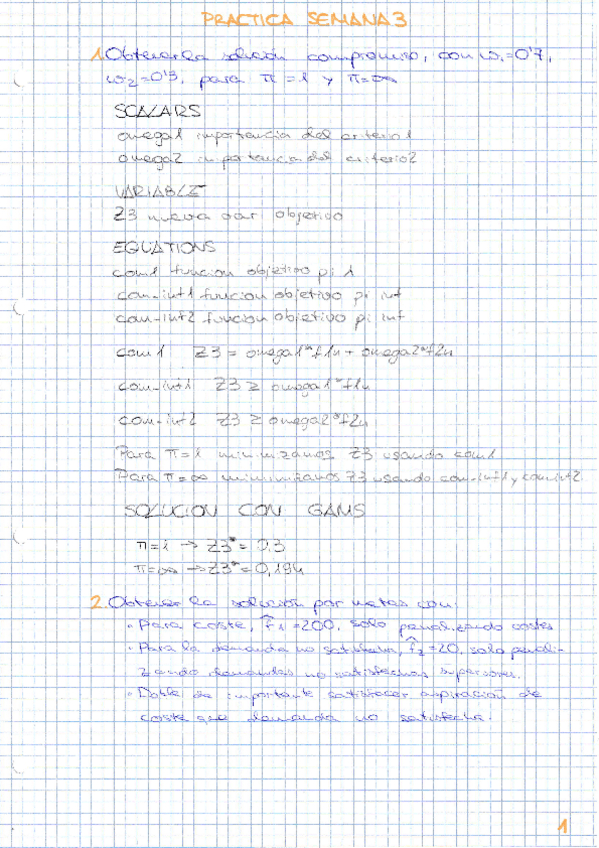 PRACTICA SEMANA 3
1. Obtener la solución compromiso, con ω1=0'7,
ω2=0'3, para π=1 y π=∞
SCALARS
omega1 importancia del criterio1
omega2 importancia del criterio2
VARIABLE
Z3 nueva var objetivo
EQUATIONS
com1 funcion objetivo pi 1
com-inf1 funcion objetivo pi inf
com-inf2 funcion objetivo pi inf
com1 Z3 = omega1*f1n + omega2*f2n
com-inf1 Z3 ≥ omega1*f1n
com-inf2 Z3 ≥ omega2*f2n
Para π=1 minimizamos Z3 usando com1
Para π=∞ minimizamos Z3 usando com-inf1 y com-inf2
SOLUCION CON GAMS
π=1 → Z3*= 0.3
π=∞ → Z3*= 0,194
2. Obtener la solución por metas con:
• Para coste, f̂1=200, solo penalizando costes
• Para la demanda no satisfecha, f̂2=20, solo penali-
zando demandas no satisfechas superiores.
• Doble de importante satisfacer aspiración de
coste que demanda no satisfecha.
1